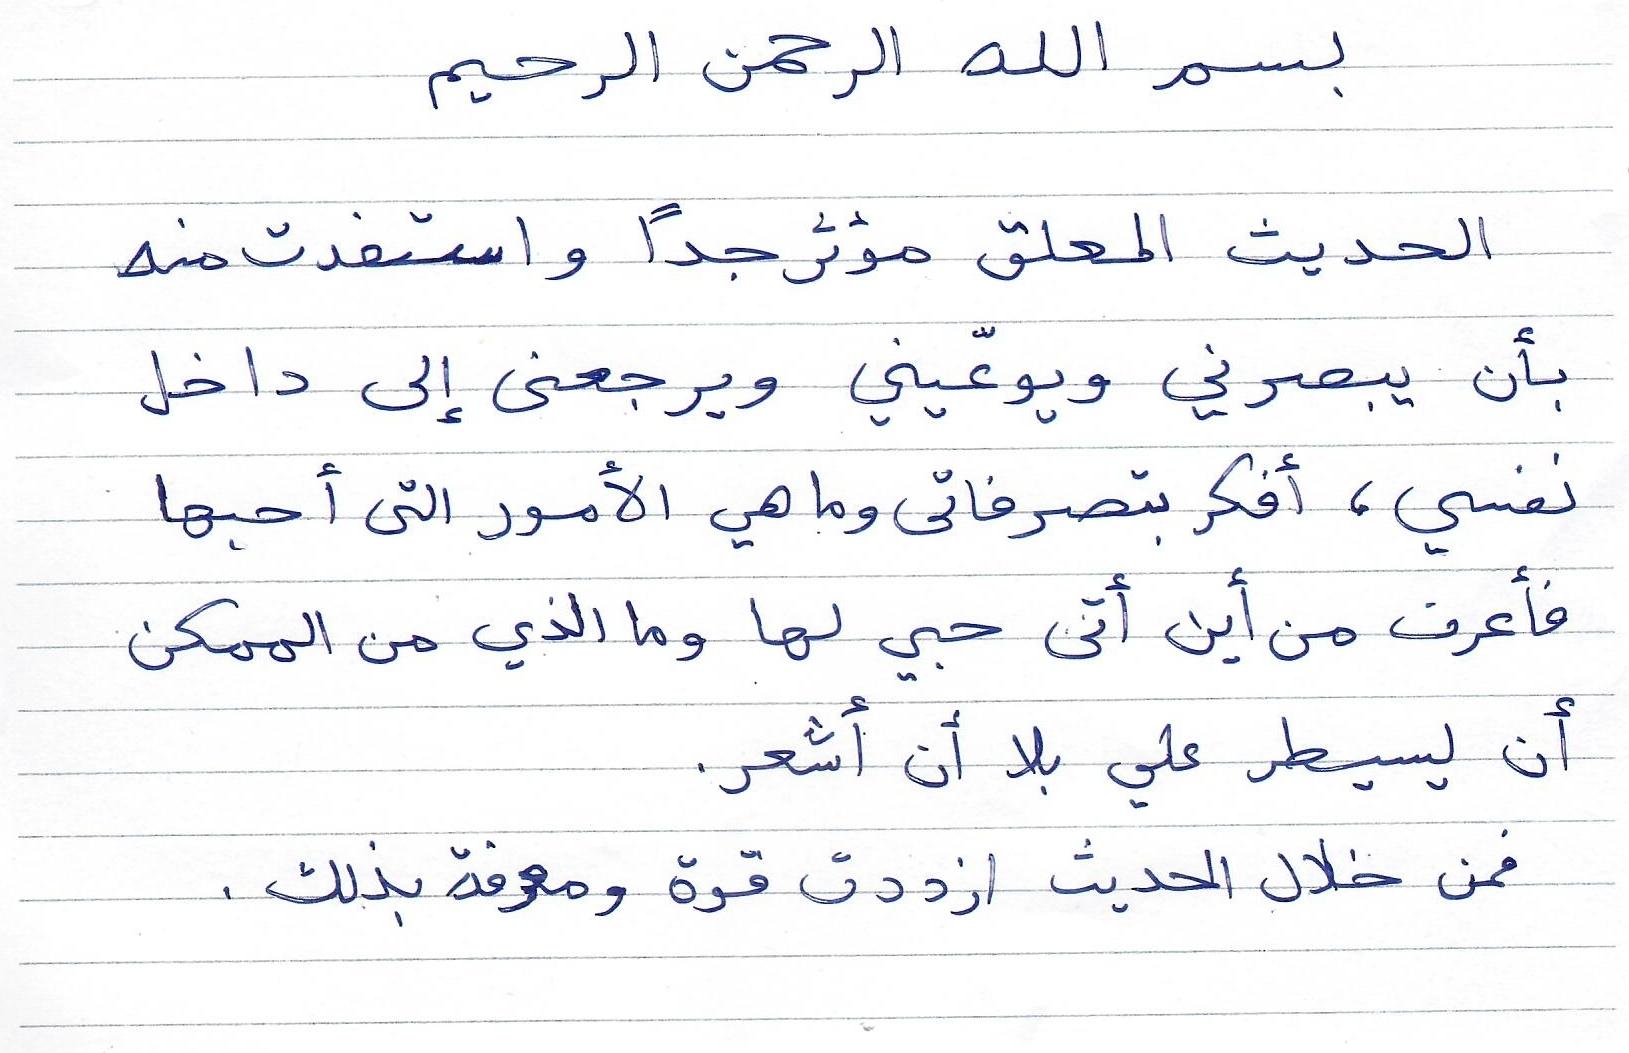 بسم الله الرحمن الرحيم
الحديث المعلق مؤثر جداً واستفدت منه
بأن يبصرني ويوعّيني ويرجعنى إلى داخل
نفسي، أفكر بتصرفاتى وما هي الأمور التى أحبها
فأعرف من أين أتى حبي لها وما الذي من الممكن
أن يسيطر علي بلا أن أشعر.
فمن خلال الحديث ازددت قوة ومعرفة بذلك.